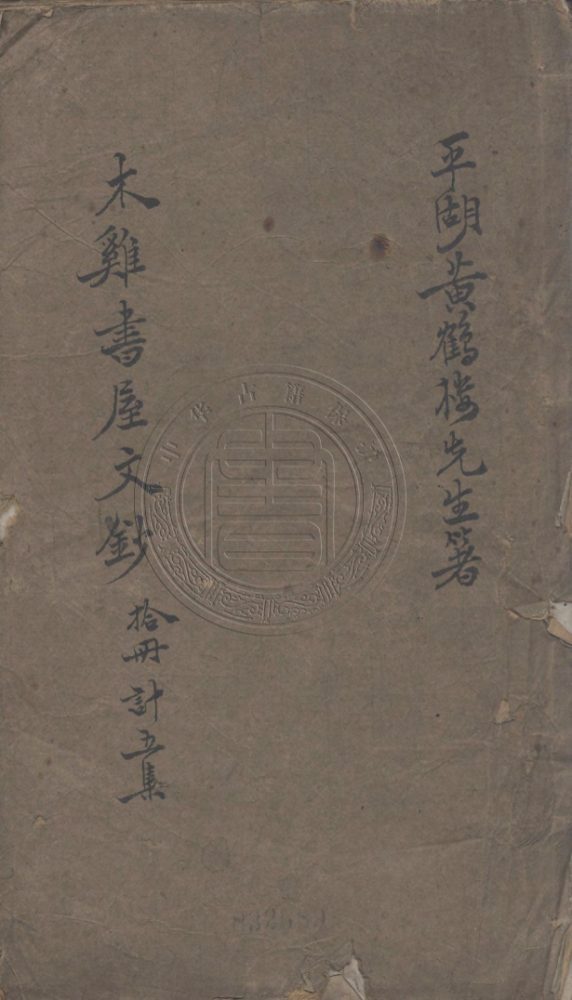 平湖黃鶴樓先生箸
木雞書屋文鈔 拾冊計五集